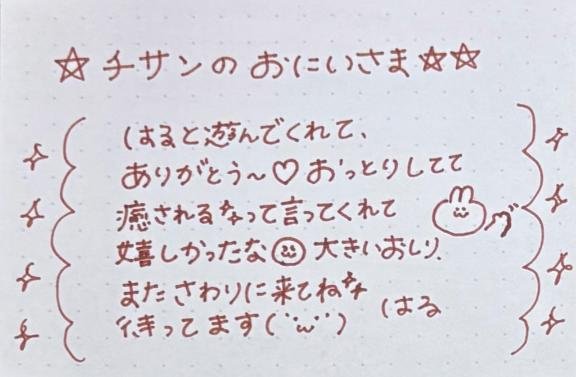 ☆チサンのおにいさま☆☆
はると遊んでくれて、
ありがとう〜♡おっとりしてて
癒されるなって言ってくれて
嬉しかったな 大きいおしり、
またさわりに来てね
待ってます(¨ω¨) はる